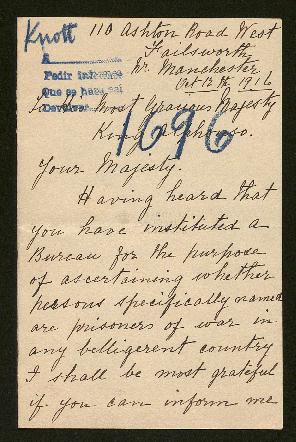 Knott
110 Ashton Road West
Failsworth
Nr. Manchester
Oct 12th 1916
A
Pedir
Que se
Devolver
To His Most Gracious Majesty
King Alphonso.
1696
Your Majesty.
Having heard that
you have instituted a
Bureau for the purpose
of ascertaining whether
persons specifically named
are prisoners of war in
any belligerent country
I shall be most grateful
if you can inform me